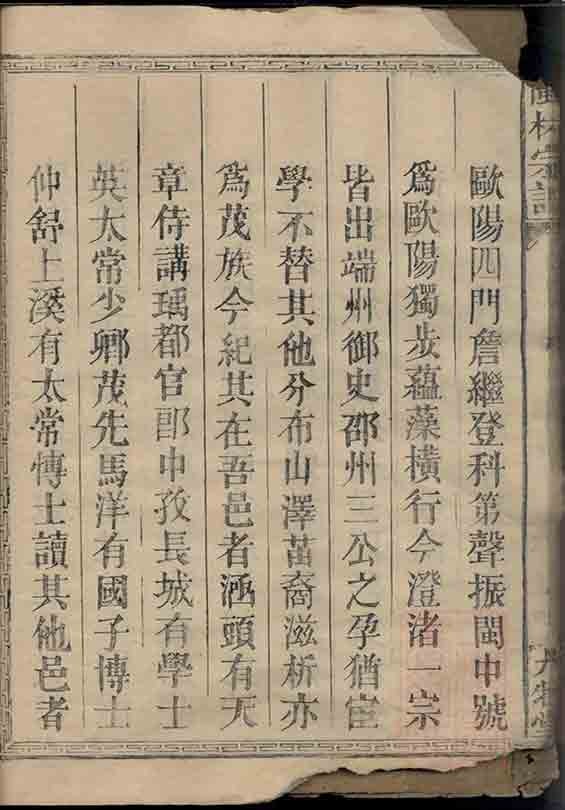 林宗譜
歐陽四門詹繼登科第聲振閩中號
爲歐陽獨步蘊藻橫行今澄渚一宗
皆出端州御史邵州三公之孕猶宦
學不替其他分布山澤苗裔滋析亦
爲茂族今紀其在吾邑者涵頭有天
章侍講瑀都官郎中孜長城有學士
英太常少卿茂先馬洋有國子博士
仲舒上溪有太常博士讀其他邑者